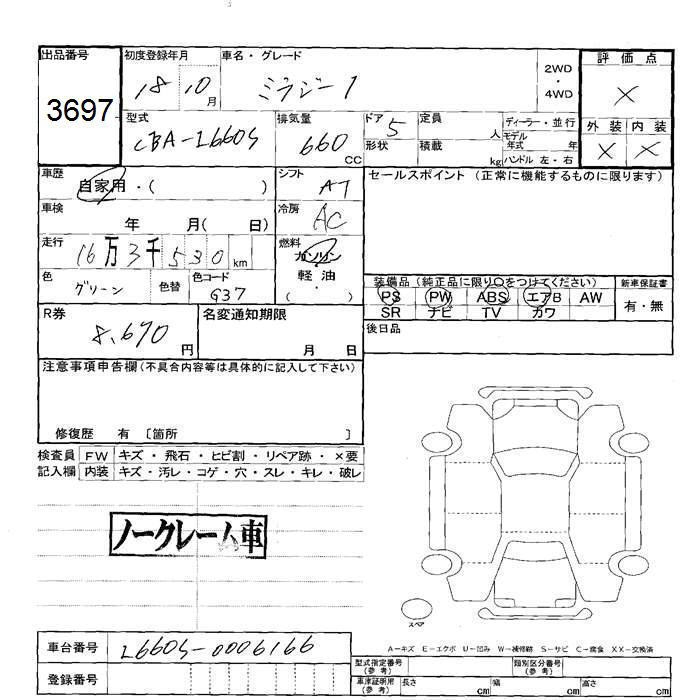 出品番号
3697
初度登録年月
18 10月
車名・グレード
ミラジーノ
2WD・4WD
評価点
×
型式
CBA-L660S
排気量
660 CC
ドア
5
形状
定員
人
積載
kg
ディーラー・並行
モデル年式 年
ハンドル 左・右
外装 内装
× ×
車歴
自家用・( )
シフト
AT
車検
年 月( 日)
冷房
AC
走行
16万3千530km
燃料
ガソリン・軽油・( )
色
グリーン
色替
色コード
G37
セールスポイント(正常に機能するものに限ります)
装備品(純正品に限り○をつけてください)
PS PW ABS エアB AW
SR ナビ TV カワ
新車保証書
有・無
後日品
R券
8,670円
名変通知期限
月 日
注意事項申告欄(不具合内容等は具体的に記入して下さい)
修復歴 有 〔箇所 〕
検査員記入欄
FW キズ・飛石・ヒビ割・リペア跡・×要
内装 キズ・汚レ・コゲ・穴・スレ・キレ・破レ
ノークレーム車
スペア
車台番号
L660S-0006166
登録番号
A-キズ E-エクボ U-凹み W-補修跡 S-サビ C-腐食 XX-交換済
型式指定番号(参考)
類別区分番号(参考)
車庫証明用(参考) 長さ cm 幅 cm 高さ cm